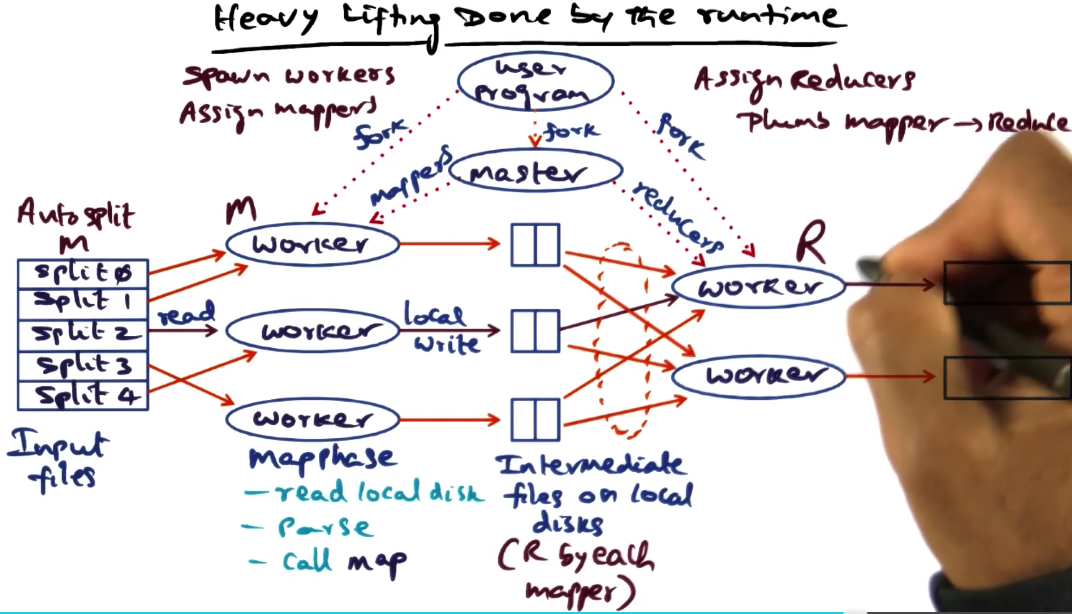 Heavy Lifting Done by the runtime
Spawn workers
Assign mappers
user
program
Assign Reducers
Plumb mapper → Reduce
fork
fork
fork
mappers
master
reducers
Auto split
M
M
R
split 0
split 1
split 2
split 3
split 4
read
worker
worker
worker
local
write
worker
worker
Input
files
map phase
– read local disk
– parse
– call map
Intermediate
files on local
disks
(R by each
mapper)